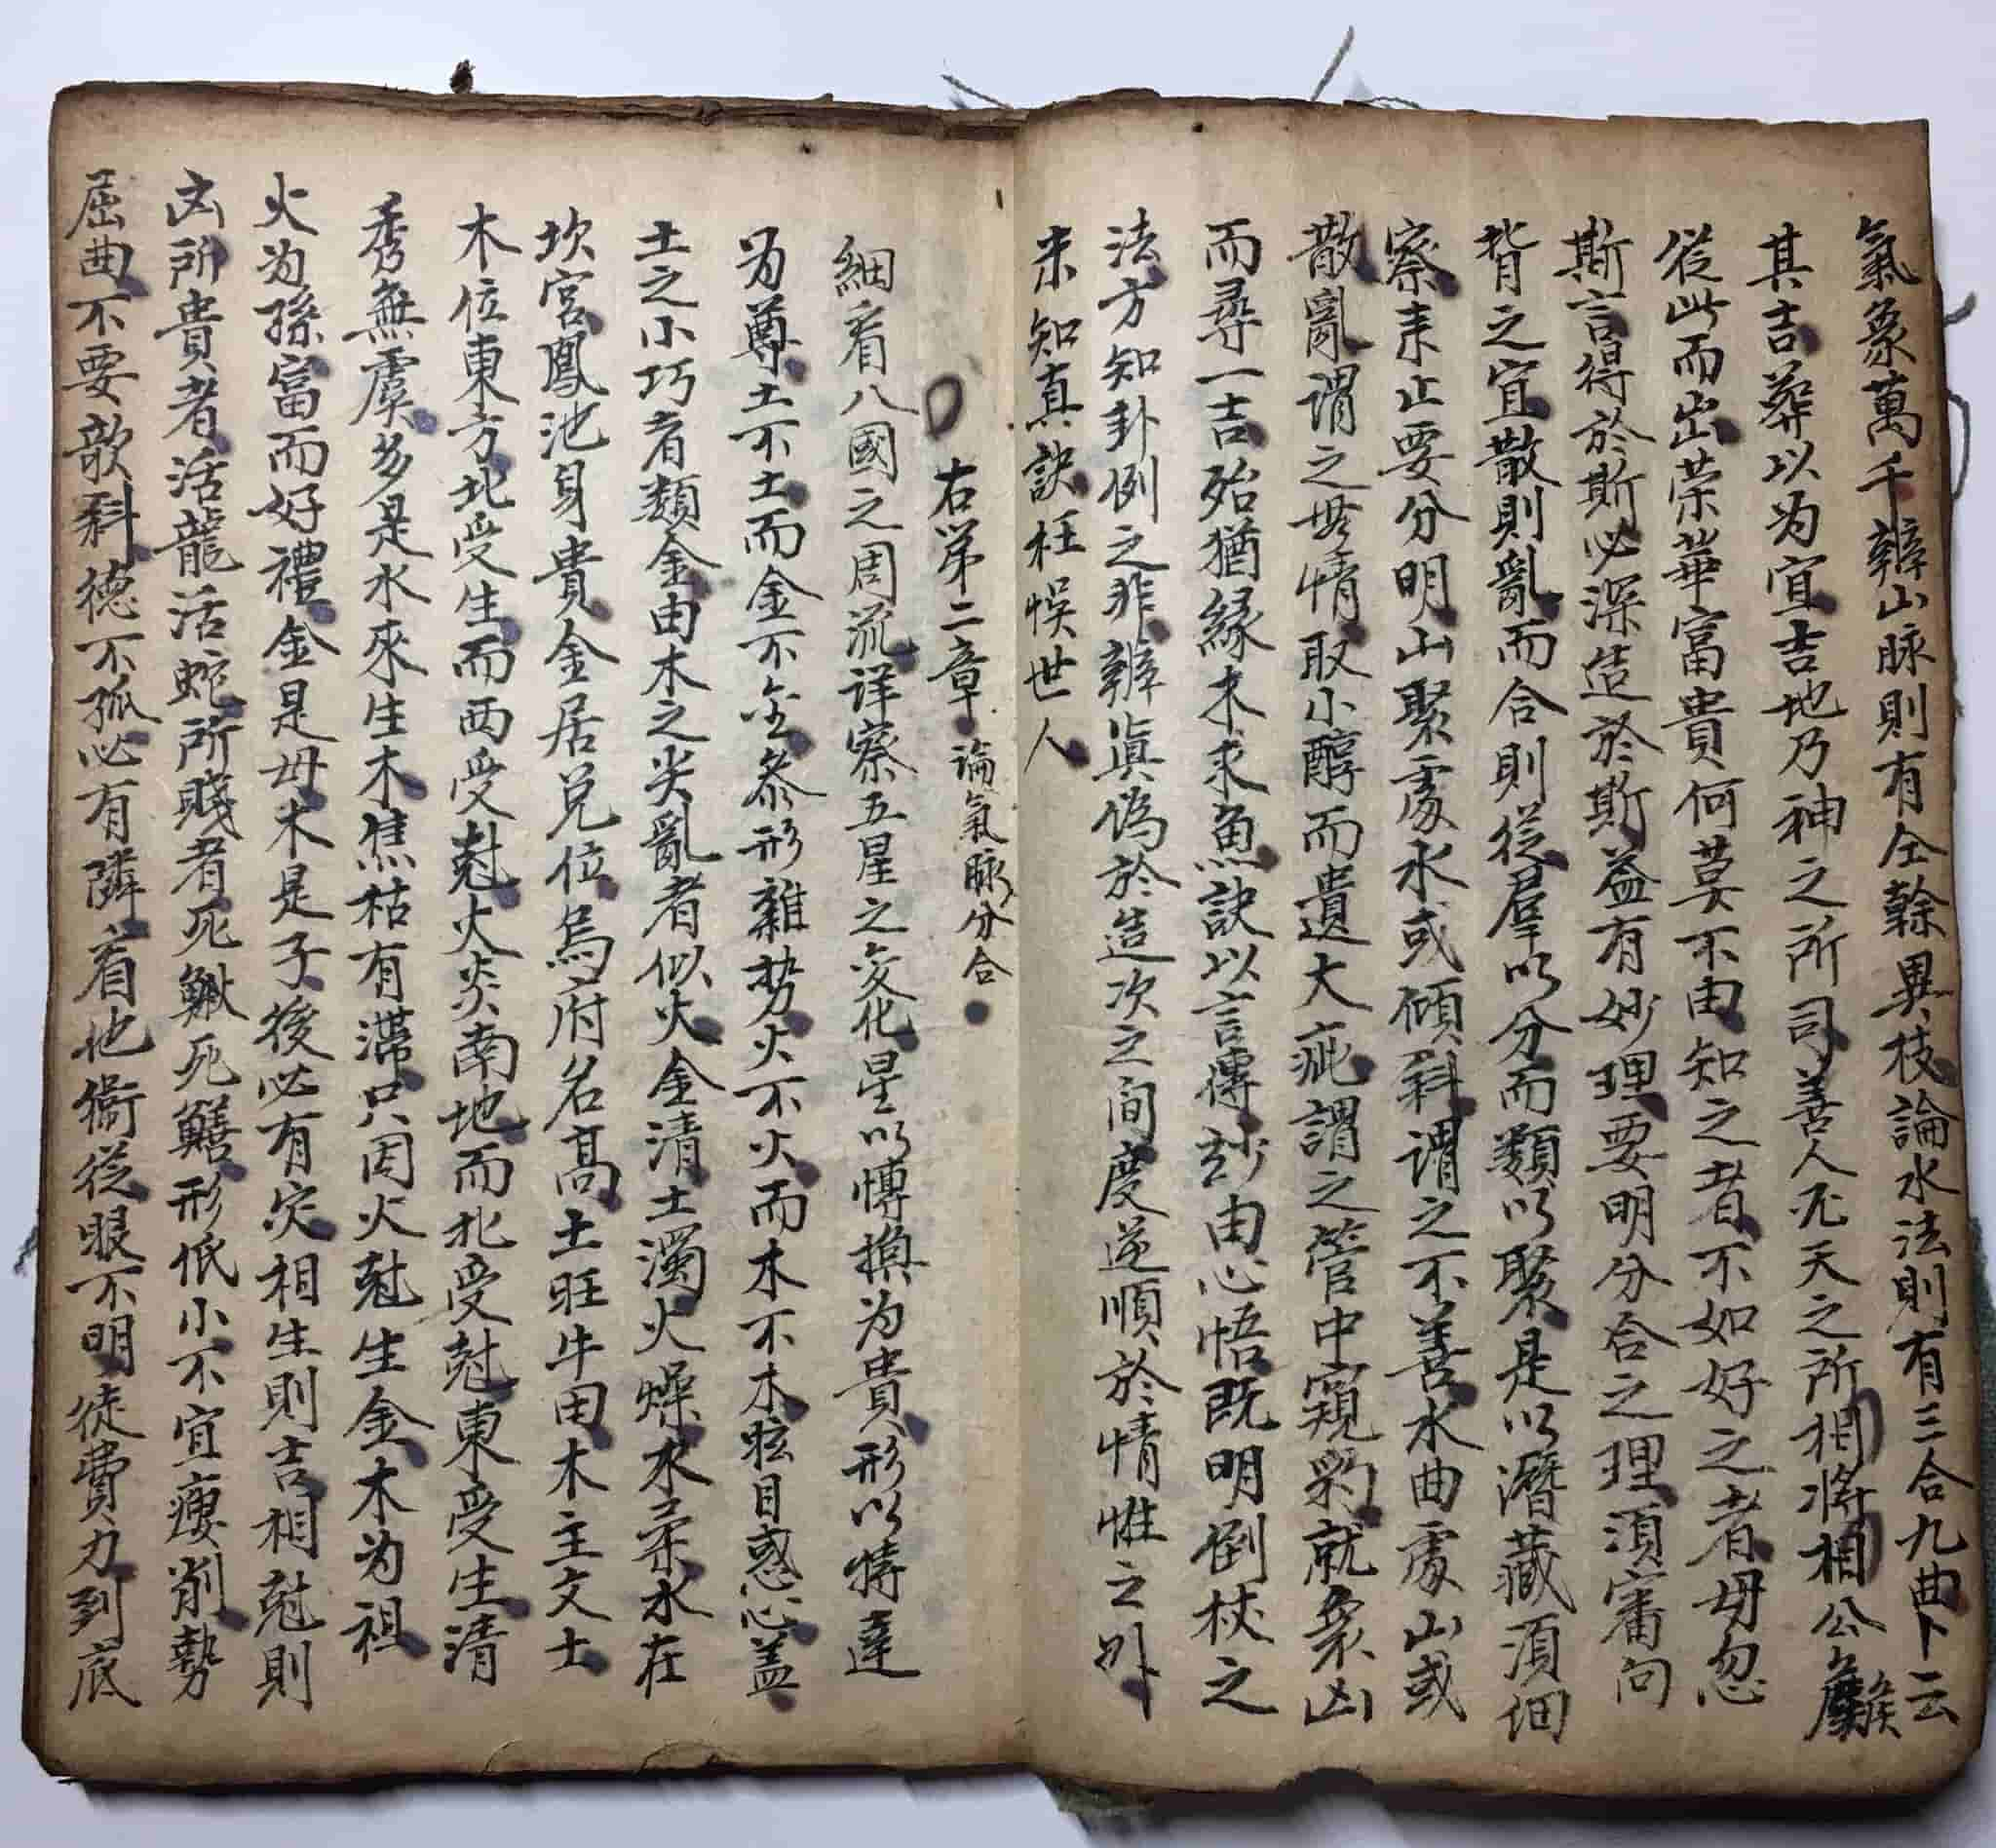 氣象萬千辦山脉則有仝榦異枝論水法則有三合九曲卜云
其吉葬以为宜吉地乃神之所司善人天之所相將相公侯
従此而出荣華富貴何莫不由知之者不如好之者毋忽
斯言得於斯必深造於斯益有妙理要明分合之理須審向
背之宜散則亂而合則從羣以分而類以聚是以潛藏須细
察来止要分明山聚處水或傾斜謂之不善水曲處山或
散亂謂之無情取小醇而遺大疵謂之管中窺豹就衆凶
而尋一吉殆猶緣木求魚訣以言傳玅由心悟既明倒杖之
法方知卦例之非辦眞偽於造次之间度逆順於情性之外
未知真訣枉悞世人
右第二章 論氣脉分合
細看八國之周流详察五星之变化星以慱换为貴形以特達
为尊土不土而金不金参形雜势火不火而木不木眩目惑心盖
土之小巧者類金由木之尖亂者似火金清土濁火燥水柔水在
坎宮鳳池身貴金居兌位烏府名髙土旺牛田木主文士
木位東方北受生而西受尅火炎南地而北受尅東受生清
秀無虞多是水來生木焦枯有滯只因火尅生金木为祖
火为孫富而好禮金是母木是子後必有灾相生則吉相尅則
凶所貴者活龍活蛇所賤者死鰍死鱔形低小不宜瘦削勢
屈曲不要欹斜德不孤必有隣看他衞從眼不明徒費力到底